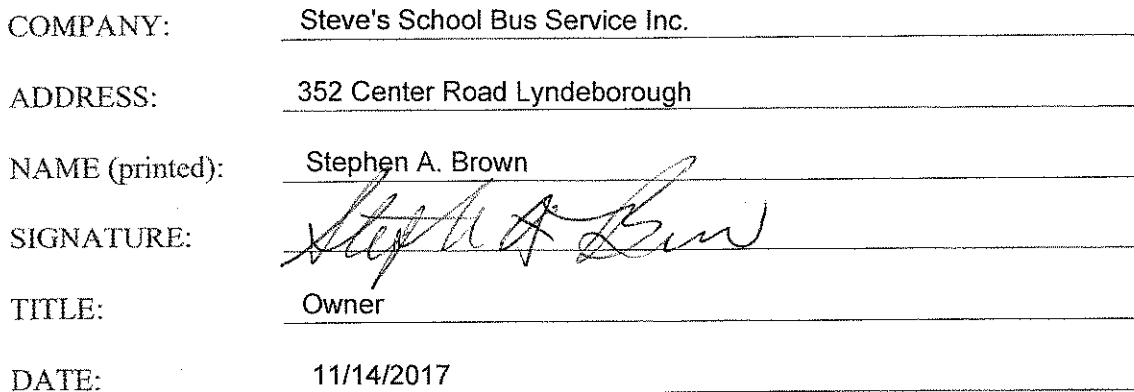 COMPANY: Steve's School Bus Service Inc.
ADDRESS: 352 Center Road Lyndeborough
NAME (printed): Stephen A. Brown
SIGNATURE: Stephen A Brown
TITLE: Owner
DATE: 11/14/2017